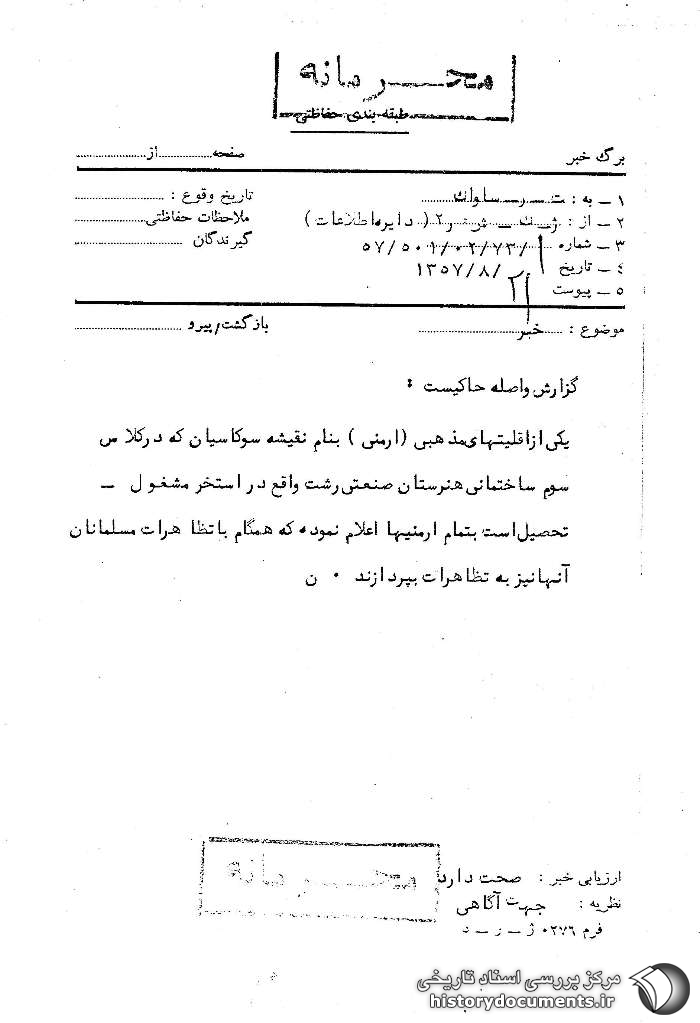 محـــرمانه
طبقه بندی حفاظتی
برگ خبر
صفحه از
۱ ـ به : ت ـ ر ـ ساواک
تاریخ وقوع :
۲ ـ از : ژ ـ ک ـ ش ـ ر۲ ( دایره اطلاعات )
ملاحظات حفاظتی
۳ ـ شماره ۵۷/۵۰۱/۰۲/۷۳/
گیرندگان
۴ ـ تاریخ /۱۳۵۷/۸
۵ ـ پیوست
موضوع : خبر
بازگشت/پیرو
گزارش واصله حاکیست :
یکی از اقلیتهای مذهبی (ارمنی ) بنام نقیشه سوکاسیان که در کلاس
سوم ساختمانی هنرستان صنعتی رشت واقع در استخر مشغول ـ
تحصیل است بتمام ارمنیها اعلام نموده که همگام با تظاهرات مسلمانان
آنها نیز به تظاهرات بپردازند ۰ ن
محـــرمانه
ارزیابی خبر : صحت دارد
نظریه : جهت آگاهی
فرم ۰۲۷۶ ژ ـ ر ـ د
مرکز بررسی اسناد تاریخی
historydocuments.ir